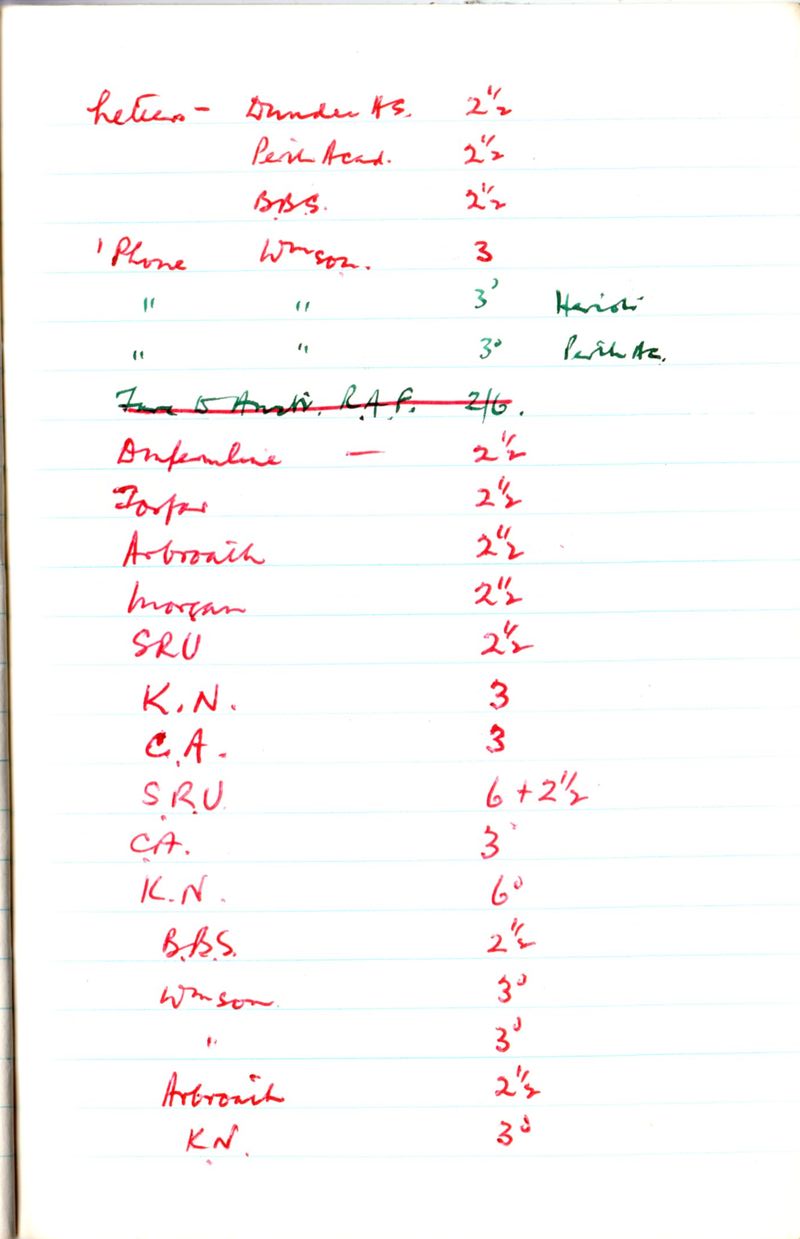 Letters - Dundee H.S. 2 1/2
Perth Acad. 2 1/2
B.B.S. 2 1/2
'Phone Wmson. 3
" " 3d Heriots
" " 3d Perth Ac.
Fare to Austr. R.A.F. 2/6.
Dunfermline — 2 1/2
Forfar 2 1/2
Arbroath 2 1/2
Morgan 2 1/2
SRU 2 1/2
K.N. 3
C.A. 3
S.R.U. 6 + 2 1/2
C.A. 3
K.N. 6d
B.B.S. 2 1/2
Wmson 3d
" 3d
Arbroath 2 1/2
K.N. 3d